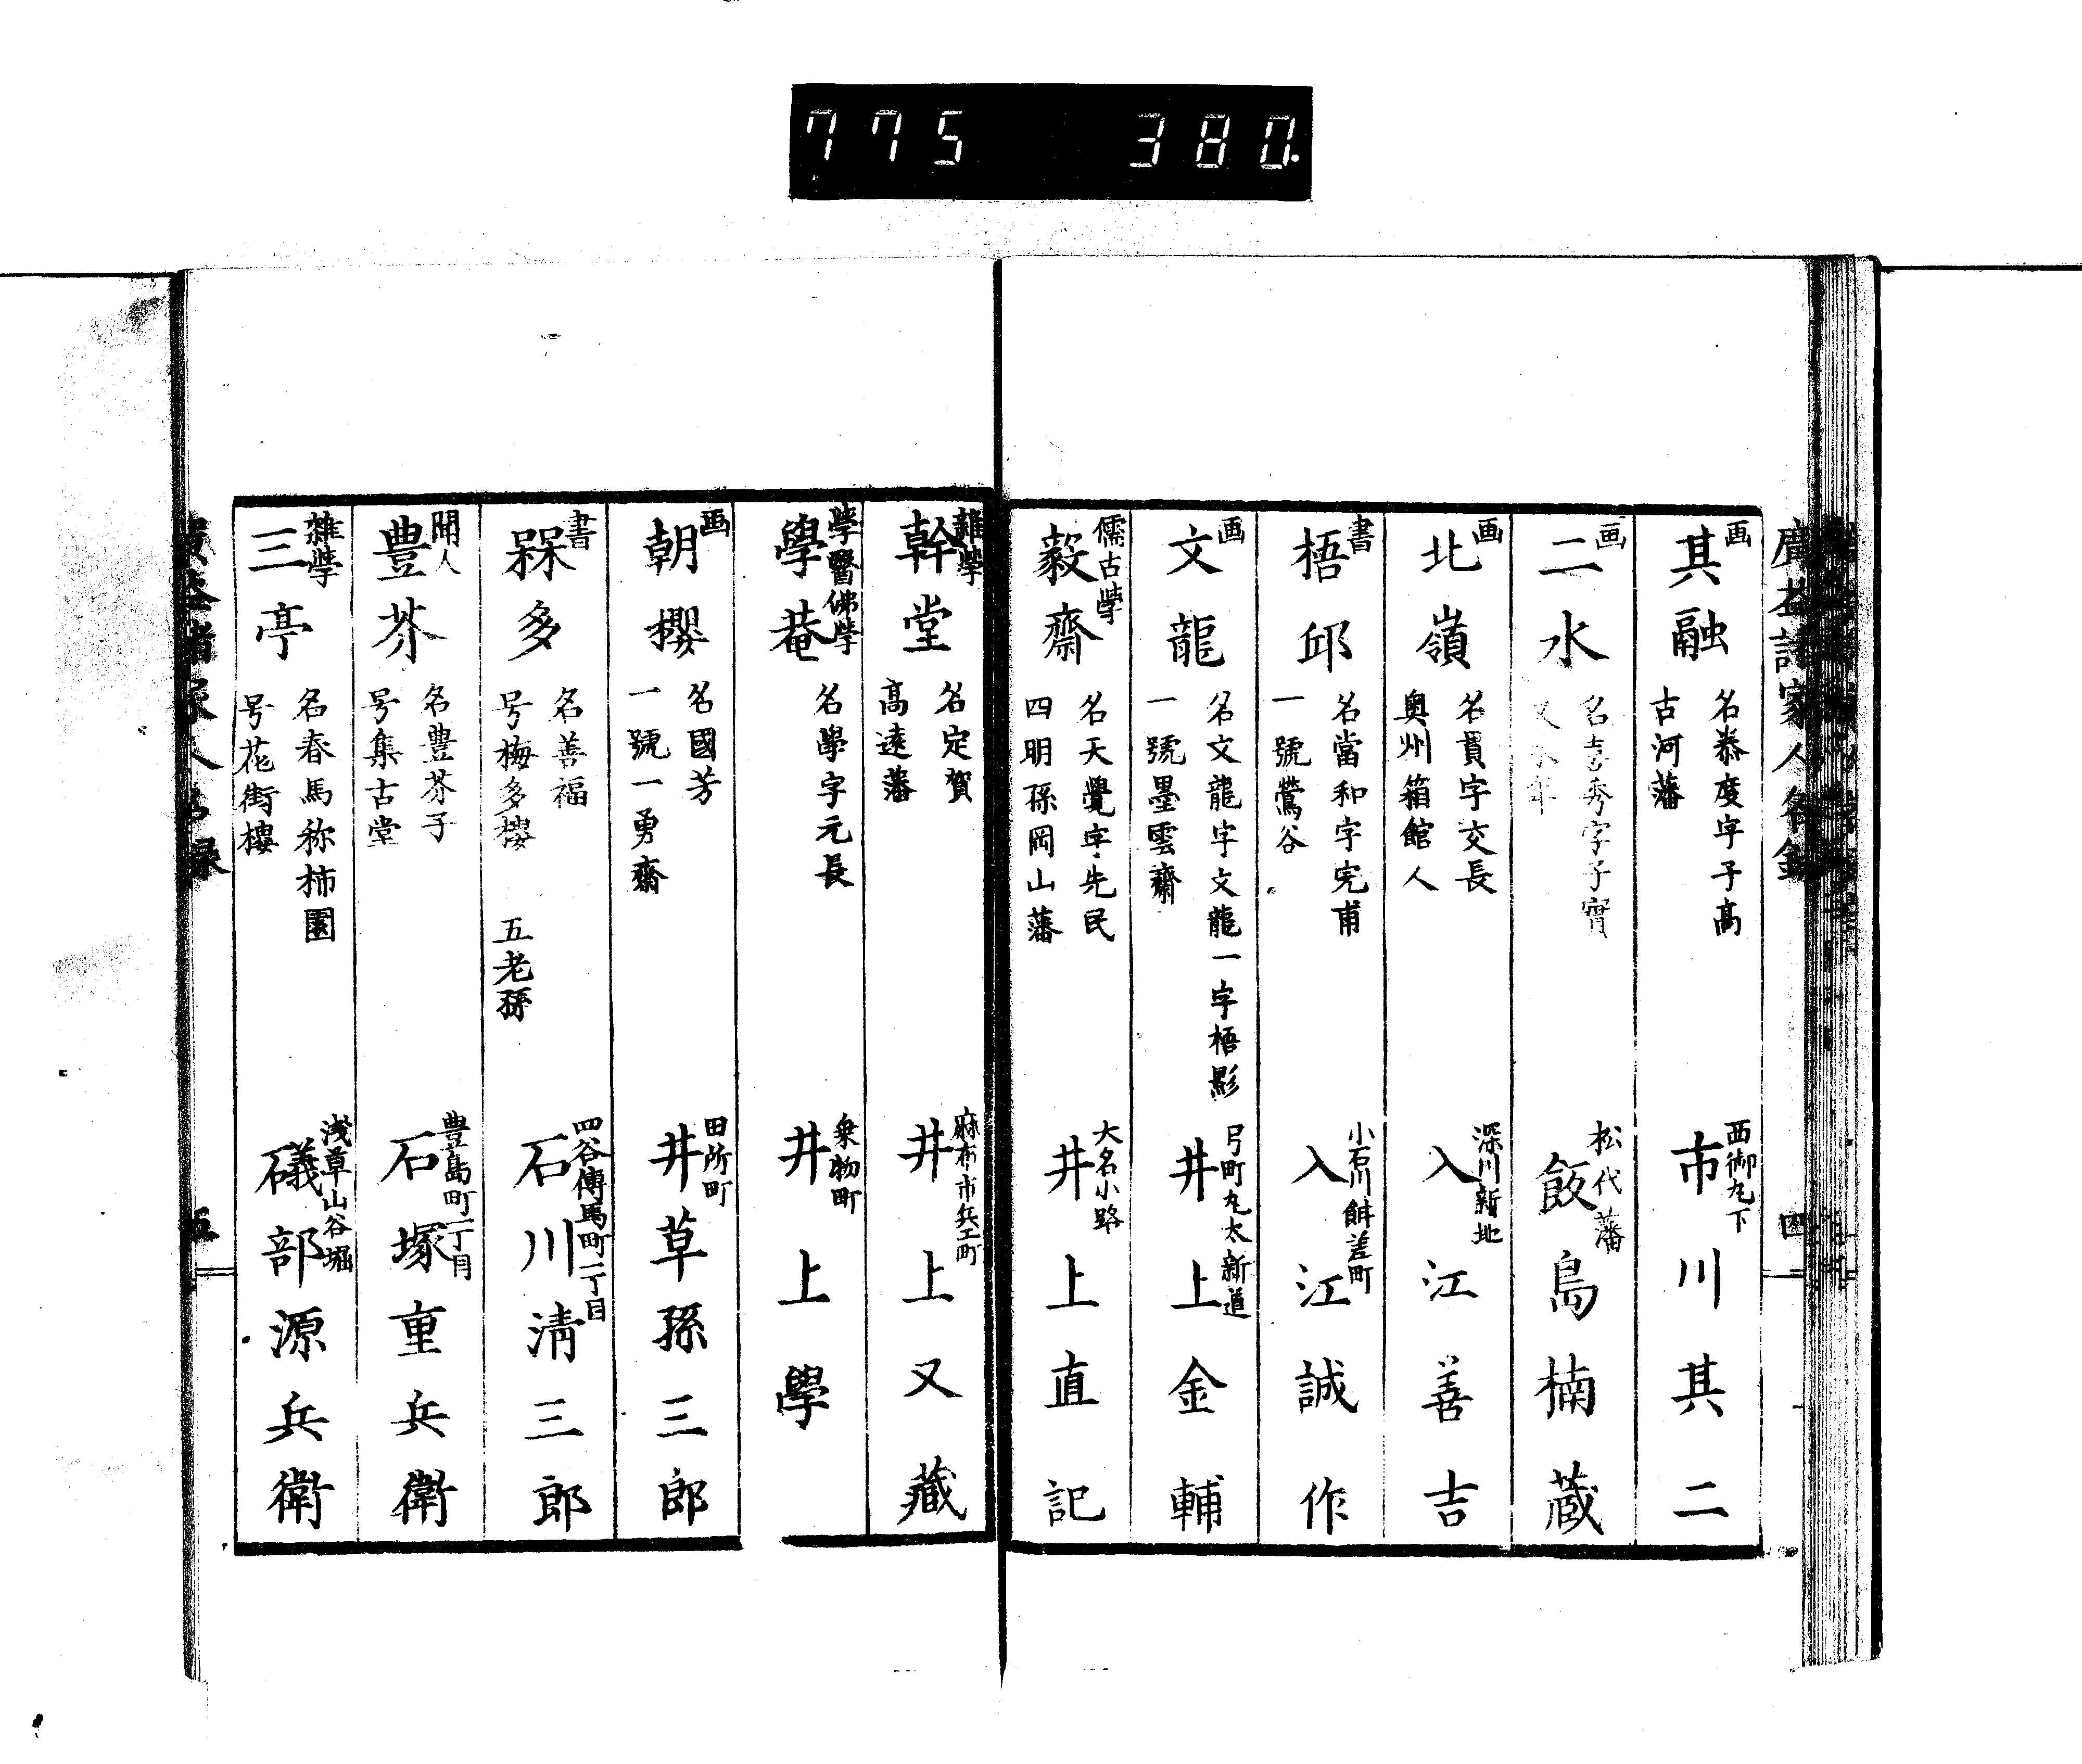 775 380.
廣益諸家人名録
四
画
其融
名泰度字子高
古河藩
西御丸下
市川其二
画
二水
名喜秀字子實
松代藩
飯島楠蔵
画
北嶺
名貫字交長
奥州箱館人
深川新地
入江善吉
書
梧邱
名當和字完甫
一號鶯谷
小石川餌差町
入江誠作
画
文龍
名文龍字文龍一字梧影
一號墨雲齋
弓町丸太新道
井上金輔
儒古斈
毅齋
名天覺字先民
四明孫岡山藩
大名小路
井上直記
雜斈
幹堂
名定賀
高遠藩
麻布市兵工町
井上又藏
斈醫佛斈
學菴
名學字元長
乗物町
井上學
画
朝櫻
名國芳
一號一勇齋
田所町
井草孫三郎
書
槑多
名善福
号梅多樓 五老孫
四谷傳馬町二丁目
石川清三郎
聞人
豊芥
名豊芥子
号集古堂
豊島町一丁目
石塚重兵衛
雜斈
三亭
名春馬称柿園
号花街樓
浅草山谷堀
礒部源兵衛
五